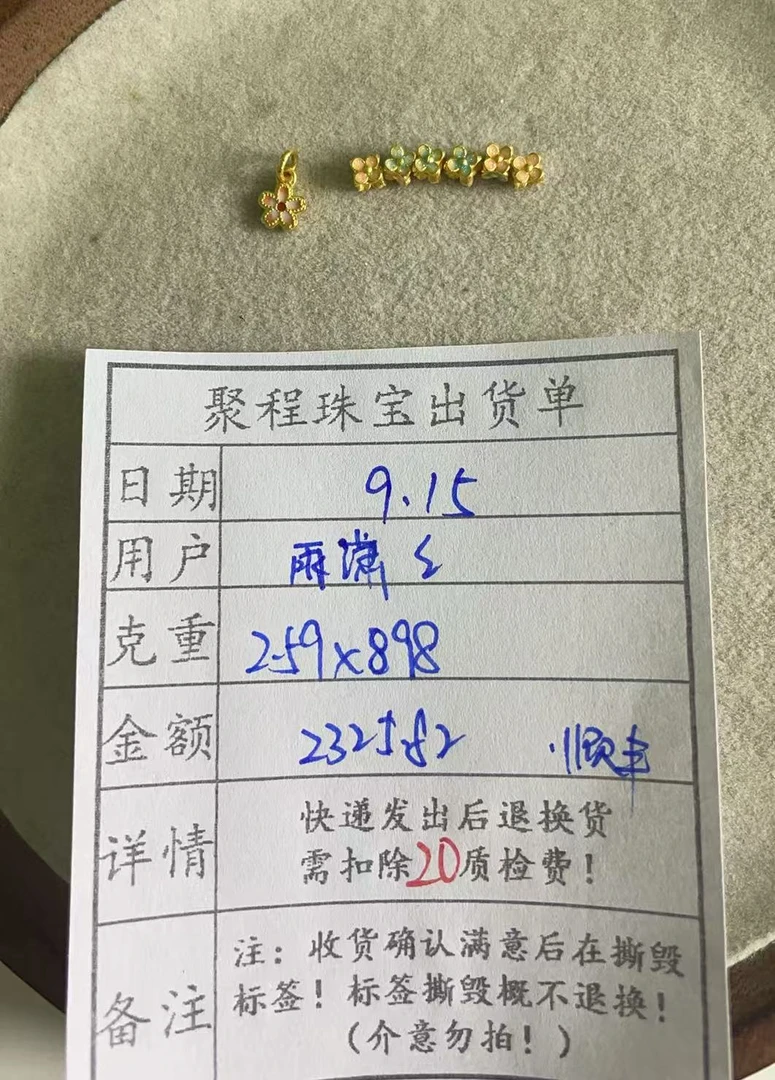 聚程珠宝出货单
日期 9.15
用户 雨潇
克重 2.59x898
金额 2325.82 顺丰
详情 快递发出后退换货
需扣除20质检费!
备注 注: 收货确认满意后在撕毁
标签! 标签撕毁概不退换!
(介意勿拍!)